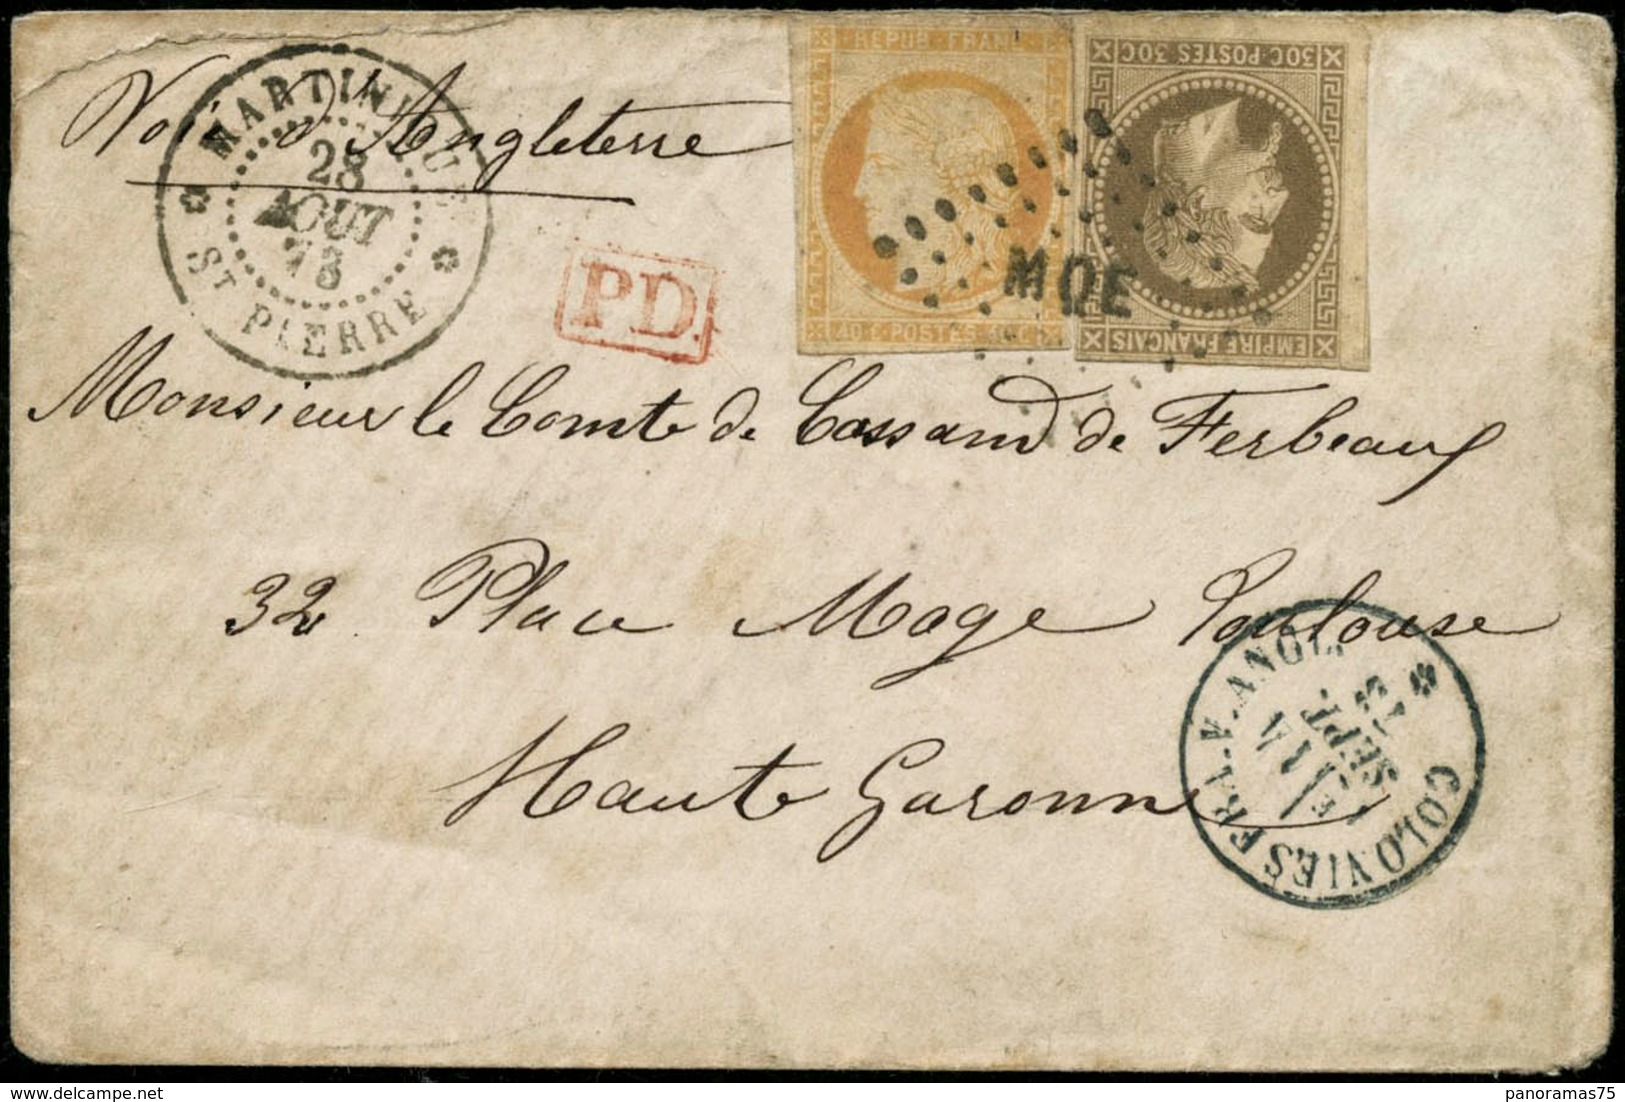 Voie d'Angleterre
MARTINIQUE
28
AOUT
73
ST PIERRE
PD.
REPUB. FRANC.
40 C. POSTES 40 C
30C. POSTES 30C
EMPIRE FRANÇAIS
MQE
Monsieur le Comte de Cossand de Ferbeaux
32 Place Mage Toulouse
Haute Garonne
COLONIES FRA. V. ANGL.
SEPT.
73
panoramas75